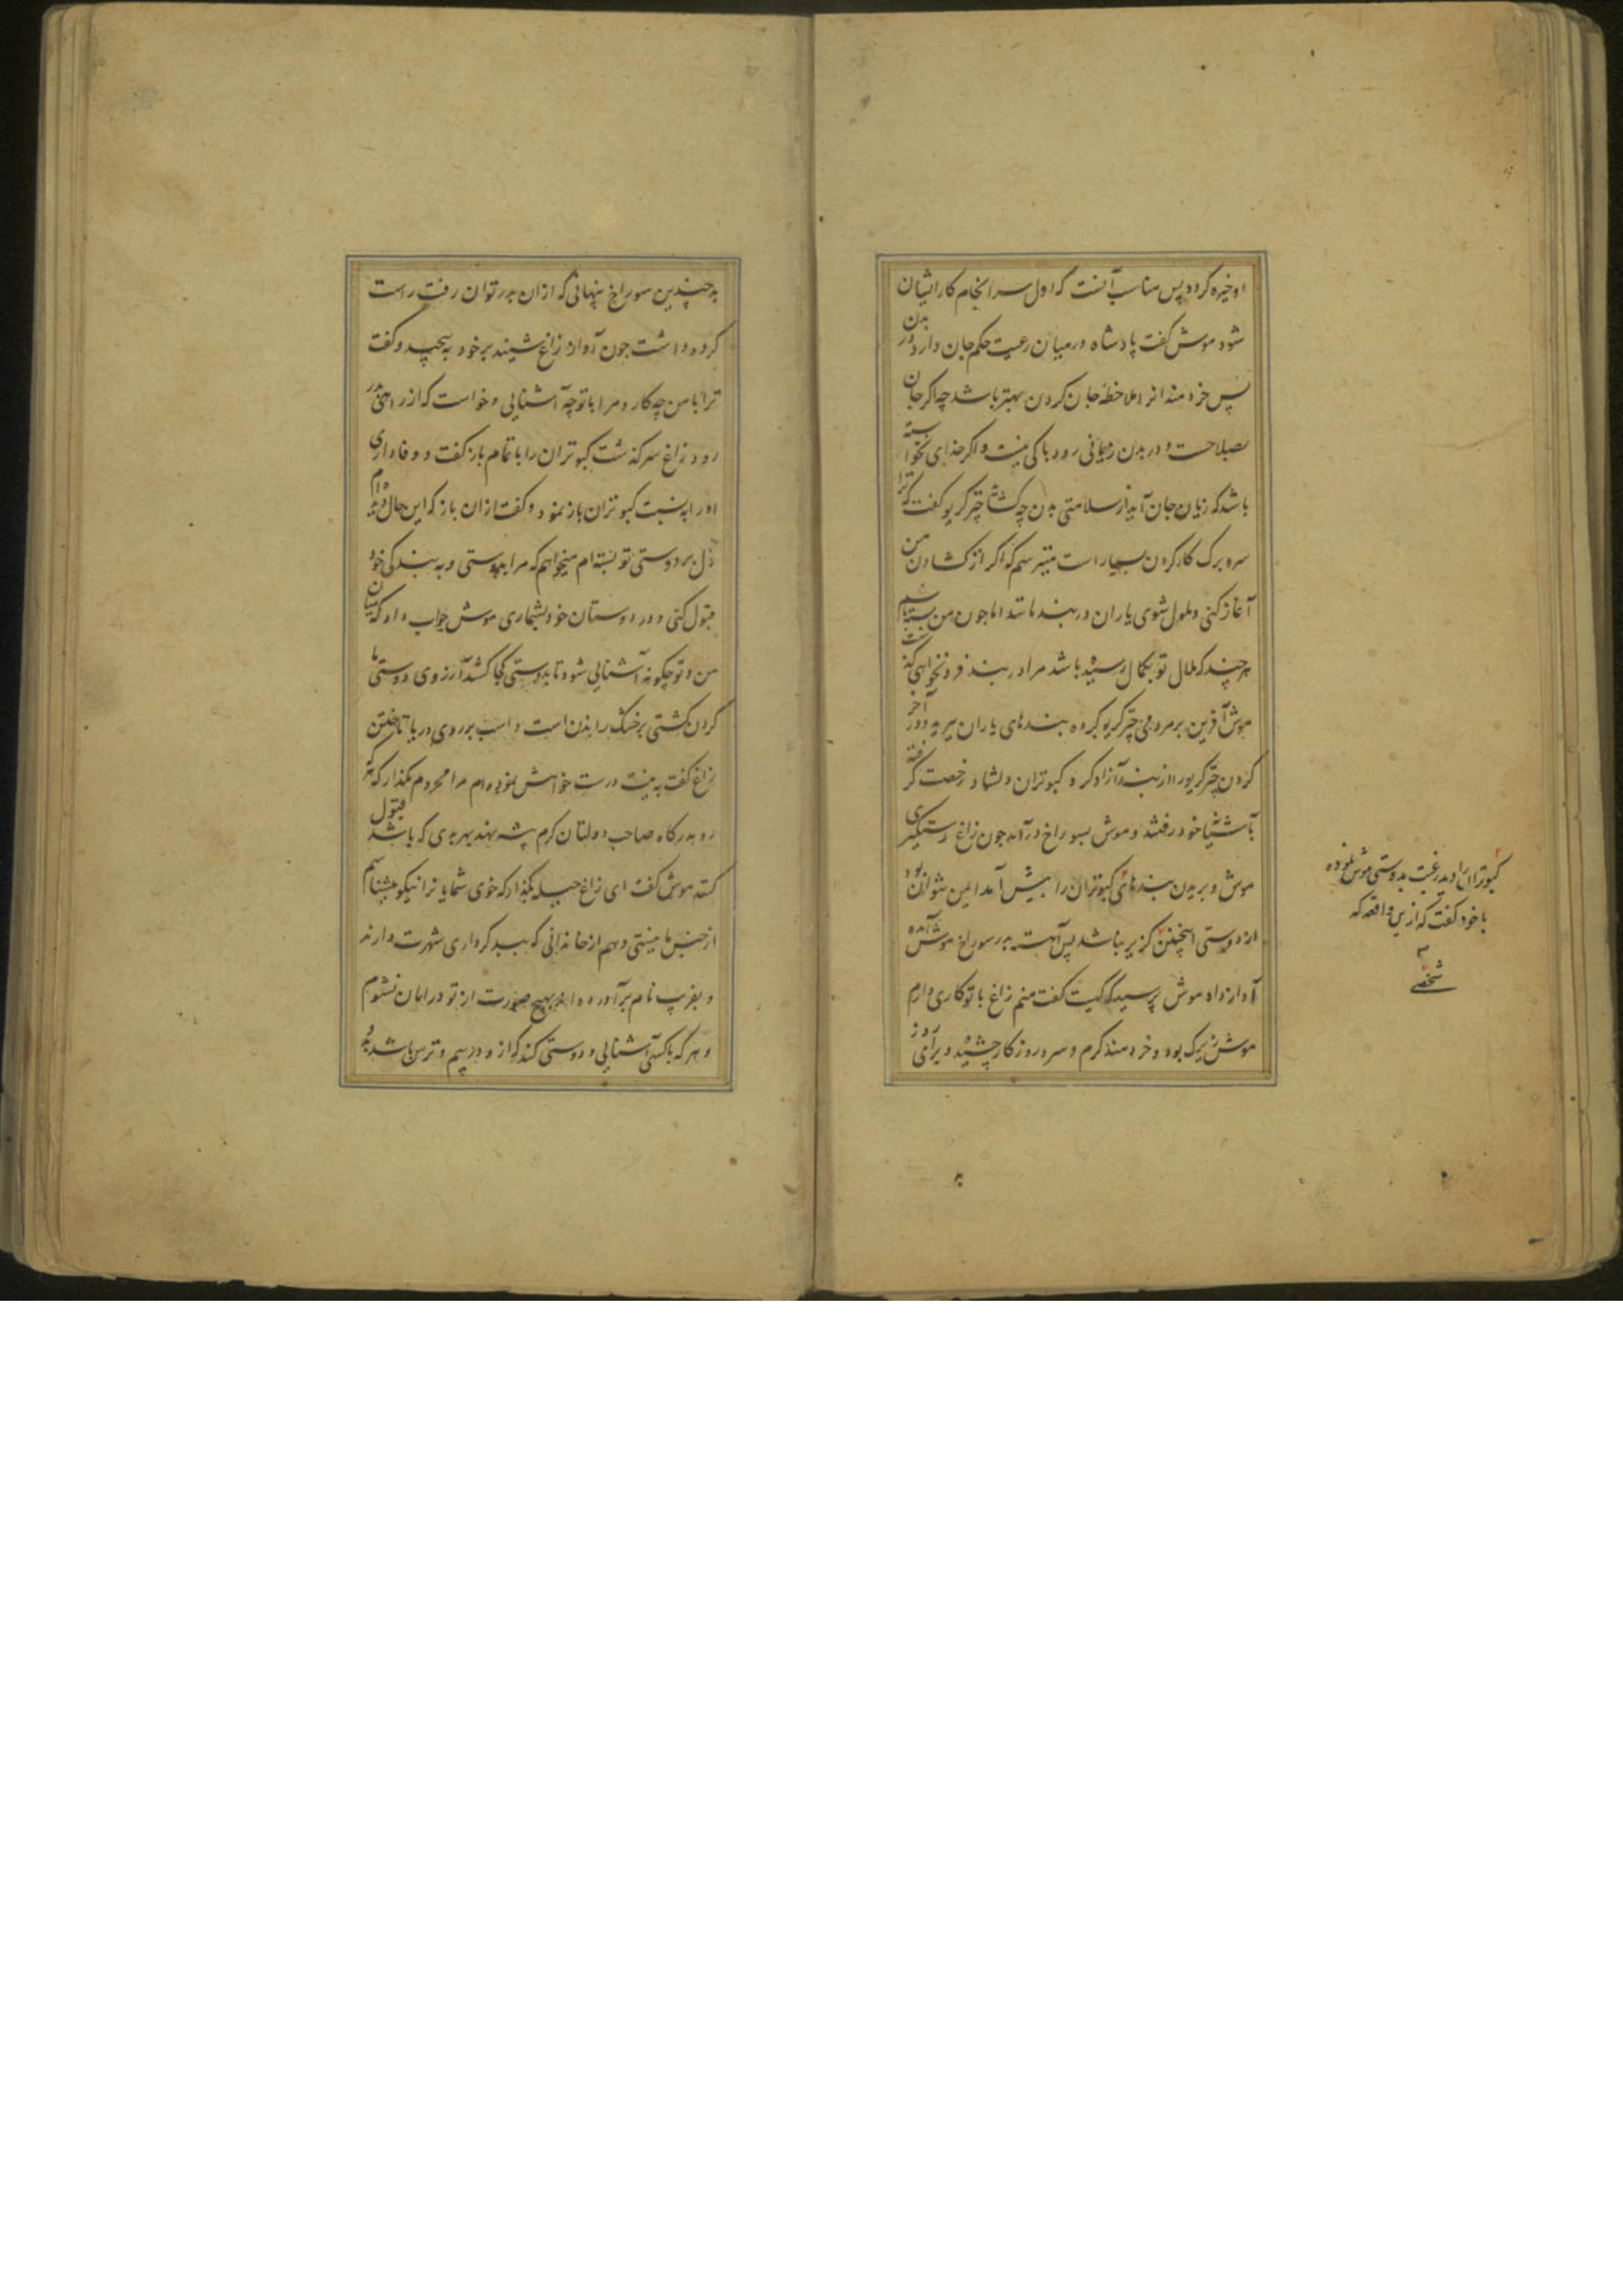 او خیره کرده پس مناسب آنست که اول سرانجام کار ایشان
شود موش گفت پادشاه در میان رعیت حکم جان دارد در بدن
پس خردمندانرا ملاحظه جان کردن بهتر باشد چه اگر جان
بصلاحست و در بدن زیانی رود باکی نیست و اگر خدای نخواسته
باشد که زیان جان آید از سلامتی بدن چه گشاید چتر گریو گفت که ترا
سر و برگ کار کردن بسیار است میترسم که اگر از گشادن من
آغاز کنی و ملول شوی یاران در بند مانند اما چون من بسته باشم
هر چند که ملال تو بکمال رسیده باشد مرا در بند فرو نخواهی گذاشت
موش آفرین بر مردمی چتر گریو کرده بندهای یاران میرید و در آخر
کردن چتر گریو را از بند آزاد کرد و کبوتران دلشاد رخصت گرفته
بآشیانها خود رفتند و موش بسوراخ درآمد چون زاغ دستگیری
موش و بریدن بندهای کبوتران را پیش آمد ایمن نتوان بود
از دوستی اینچنین گزیر نباشد پس آهسته بدر سوراخ موش آمده
آواز داد موش پرسید که کیست گفت منم زاغ با تو کاری دارم
موش زیرک بود و خردمند گرم و سرد روزگار چشیده و برای روز
کبوتران را دید رغبت بدوستی موش نموده
با خود گفت که از این واقعه که
شخصی
به چندین سوراخ پنهانی که از آن بدر توان رفت راست
کرده داشت چون آواز زاغ شنید بر خود بپیچید و گفت
ترا با من چه کار و مرا با تو چه آشنایی و خواست که از راهی بدر
رود زاغ سرگذشت کبوتران را با تمام باز گفت و وفاداری
او را به نسبت کبوتران باز نمود و گفت از آن باز که این حال دیده ام
دل بر دوستی تو بسته ام میخواهم که مرا بدوستی و به بندگی خود
قبول کنی و در دوستان خود بشماری موش جواب داد که میان
من و تو چگونه آشنایی شود تا بدوستی کجا کشد آرزوی دوستی ما
کردن کشتی بر خشک راندن است و اسب بر روی دریا تاختن
زاغ گفت به نیت درست خواهش نموده ام مرا محروم مگذار که هر که
رو بدرگاه صاحب دولتان کرم پیشه نهد بهر بدی که باشد قبول
کنند موش گفت ای زاغ حیله بگذار که خوی شمایان را نیکو میشناسم
از جنس ما نیستی و هم از خاندانی که ببد کرداری شهرت دارند
و بفریب نام برآورده اند بهیچ صورت از تو در امان نشوم
و هر که با کسی آشنایی و دوستی کند که از و در بیم و ترس باشد بدو